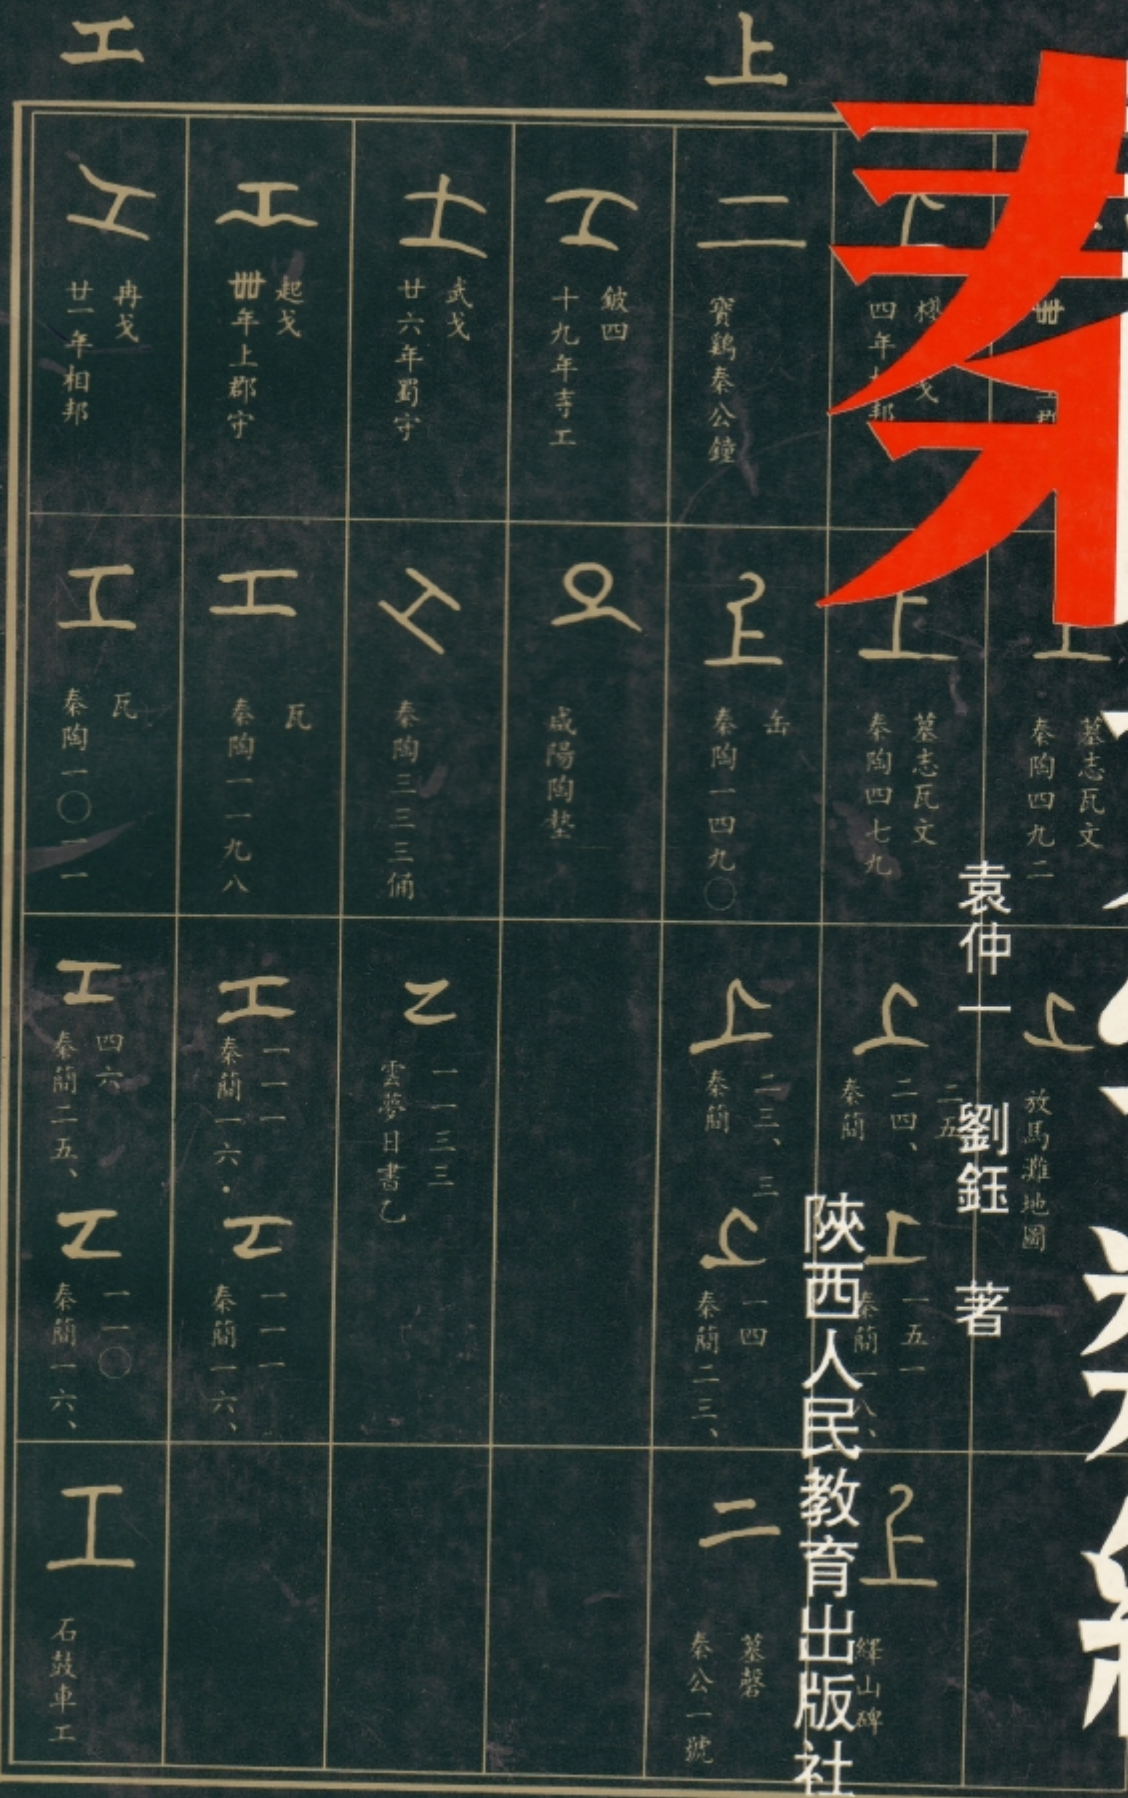 上
工
袁仲一 劉鈺 著
陝西人民教育出版社
寶鷄秦公鐘
十九年寺工
鈹四
廿六年蜀守
武戈
卌年上郡守
起戈
廿一年相邦
冉戈
墓志瓦文
秦陶四九二
墓志瓦文
秦陶四七九
缶
秦陶一四九〇
咸陽陶墊
秦陶三三三俑
瓦
秦陶一一九八
瓦
秦陶一〇二一
放馬灘地圖
二五
二四、
秦簡
二三、三
秦簡
一五一
秦簡一八、
一四
秦簡二三、
一一三三
雲夢日書乙
一一一
秦簡一六·
一一一
秦簡一六、
四六
秦簡二五、
一一〇
秦簡一六、
繹山碑
墓磬
秦公一號
石鼓車工